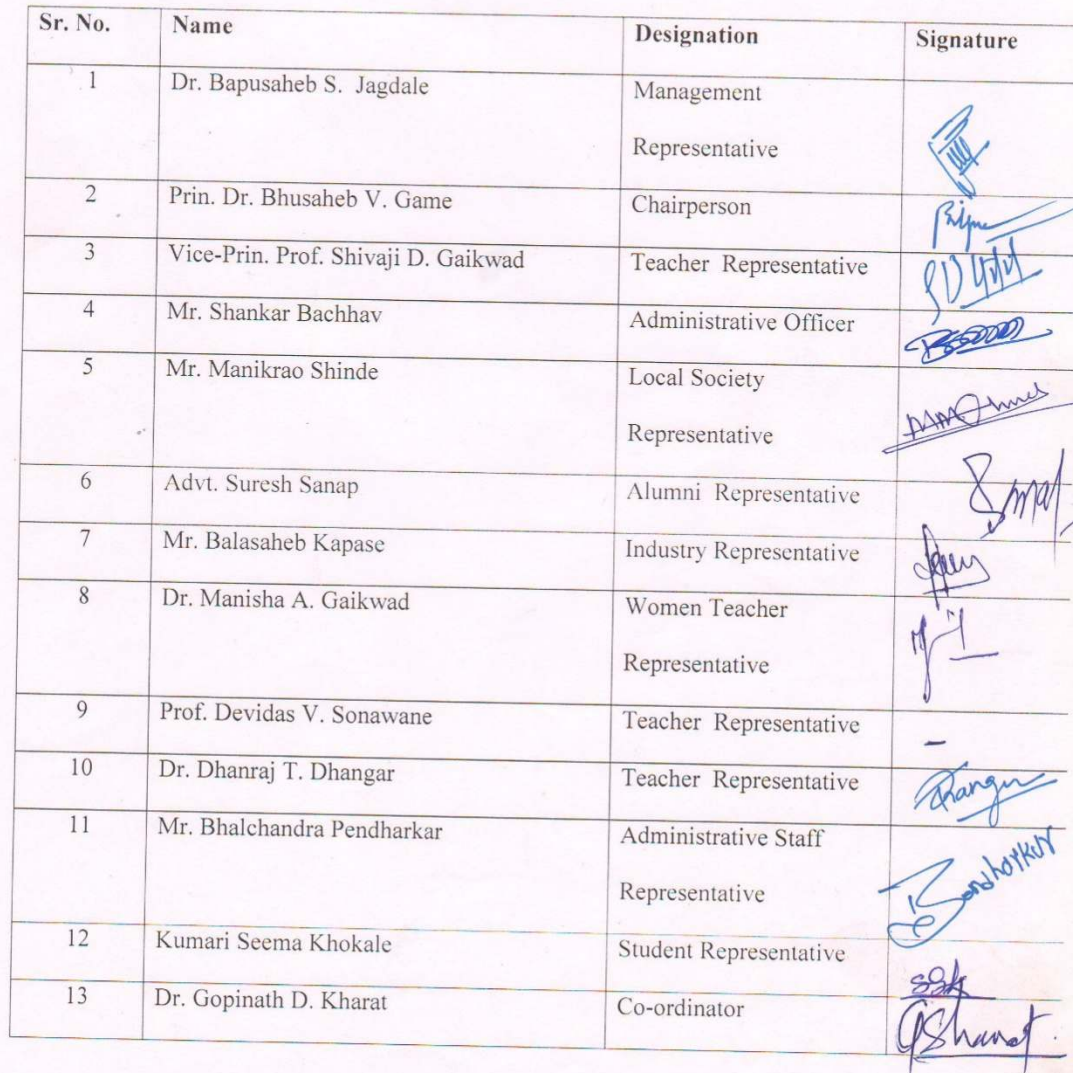 Sr. No. Name Designation Signature
1 Dr. Bapusaheb S. Jagdale Management
Representative
2 Prin. Dr. Bhusaheb V. Game Chairperson
3 Vice-Prin. Prof. Shivaji D. Gaikwad Teacher Representative
4 Mr. Shankar Bachhav Administrative Officer
5 Mr. Manikrao Shinde Local Society
Representative
6 Advt. Suresh Sanap Alumni Representative
7 Mr. Balasaheb Kapase Industry Representative
8 Dr. Manisha A. Gaikwad Women Teacher
Representative
9 Prof. Devidas V. Sonawane Teacher Representative -
10 Dr. Dhanraj T. Dhangar Teacher Representative
11 Mr. Bhalchandra Pendharkar Administrative Staff
Representative
12 Kumari Seema Khokale Student Representative SSK
13 Dr. Gopinath D. Kharat Co-ordinator